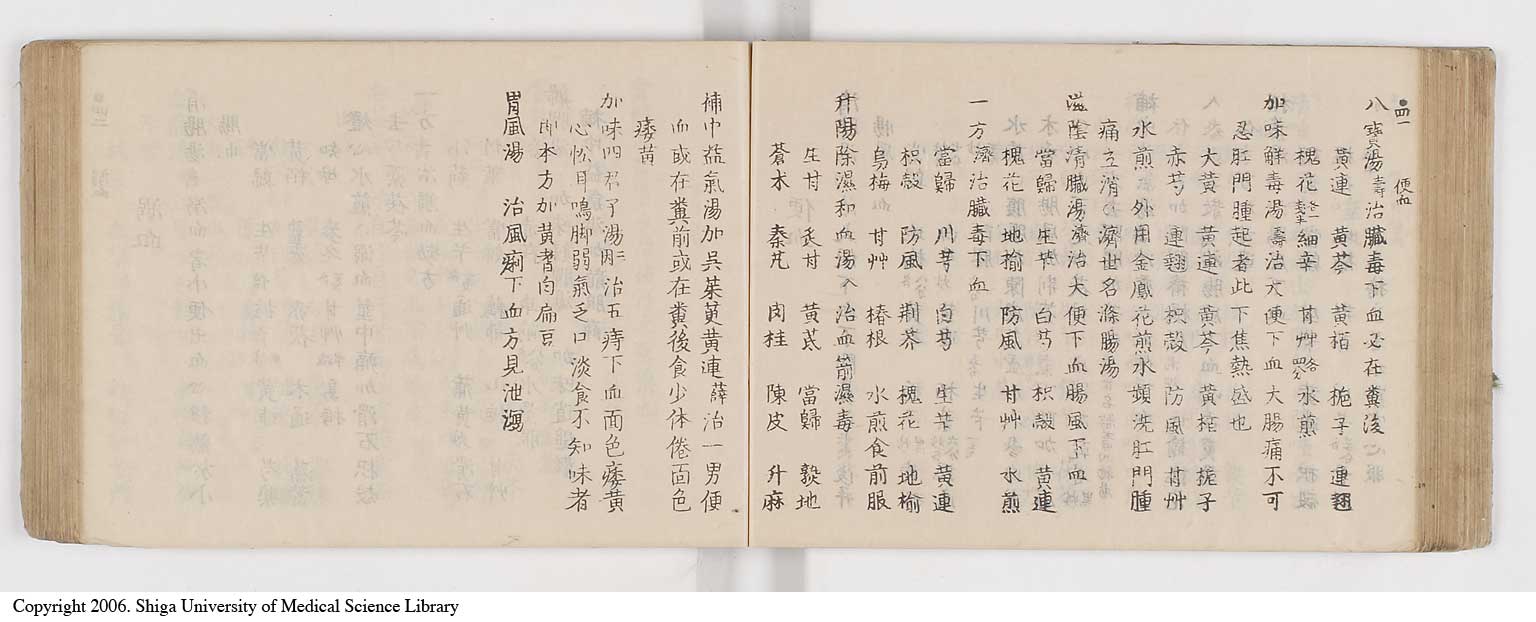 便血
八寶湯壽治臟毒下血必在糞後
黃連 黃芩 黃栢 梔子 連翹
槐花 細辛 甘艸 水煎
加味觧毒湯濤治大便下血大腸痛不可
忍肛門腫起者此下焦熱盛也
大黃 黃連 黃芩 黃栢 梔子
赤芍 連翹 枳殼 防風 甘艸
水煎外用金鳳花煎水頻洗肛門腫
痛立消 濟世名滌腸湯
滋陰清臟湯濟治大便下血腸風下血
當歸 生芐 白芍 枳殼 黃連
槐花 地榆 防風 甘艸 水煎
一方濟治臟毒下血
當歸 川芎 白芍 生芐 黃連
枳殼 防風 荊芥 槐花 地榆
烏梅 甘艸 椿根 水煎食前服
升陽除濕和血湯 治血箭濕毒
生甘 炙甘 黃茋 當歸 熟地
蒼朮 秦艽 肉桂 陳皮 升麻
補中益氣湯加吳茱萸黃連 薛治一男便
血或在糞前或在糞後食少体倦面色
痿黃
加味四君子湯 治五痔下血面色痿黃
心忪耳鳴脚弱氣乏口淡食不知味者
即本方加黃耆白扁豆
胃風湯 治風痢下血方見泄瀉
Copyright 2006. Shiga University of Medical Science Library